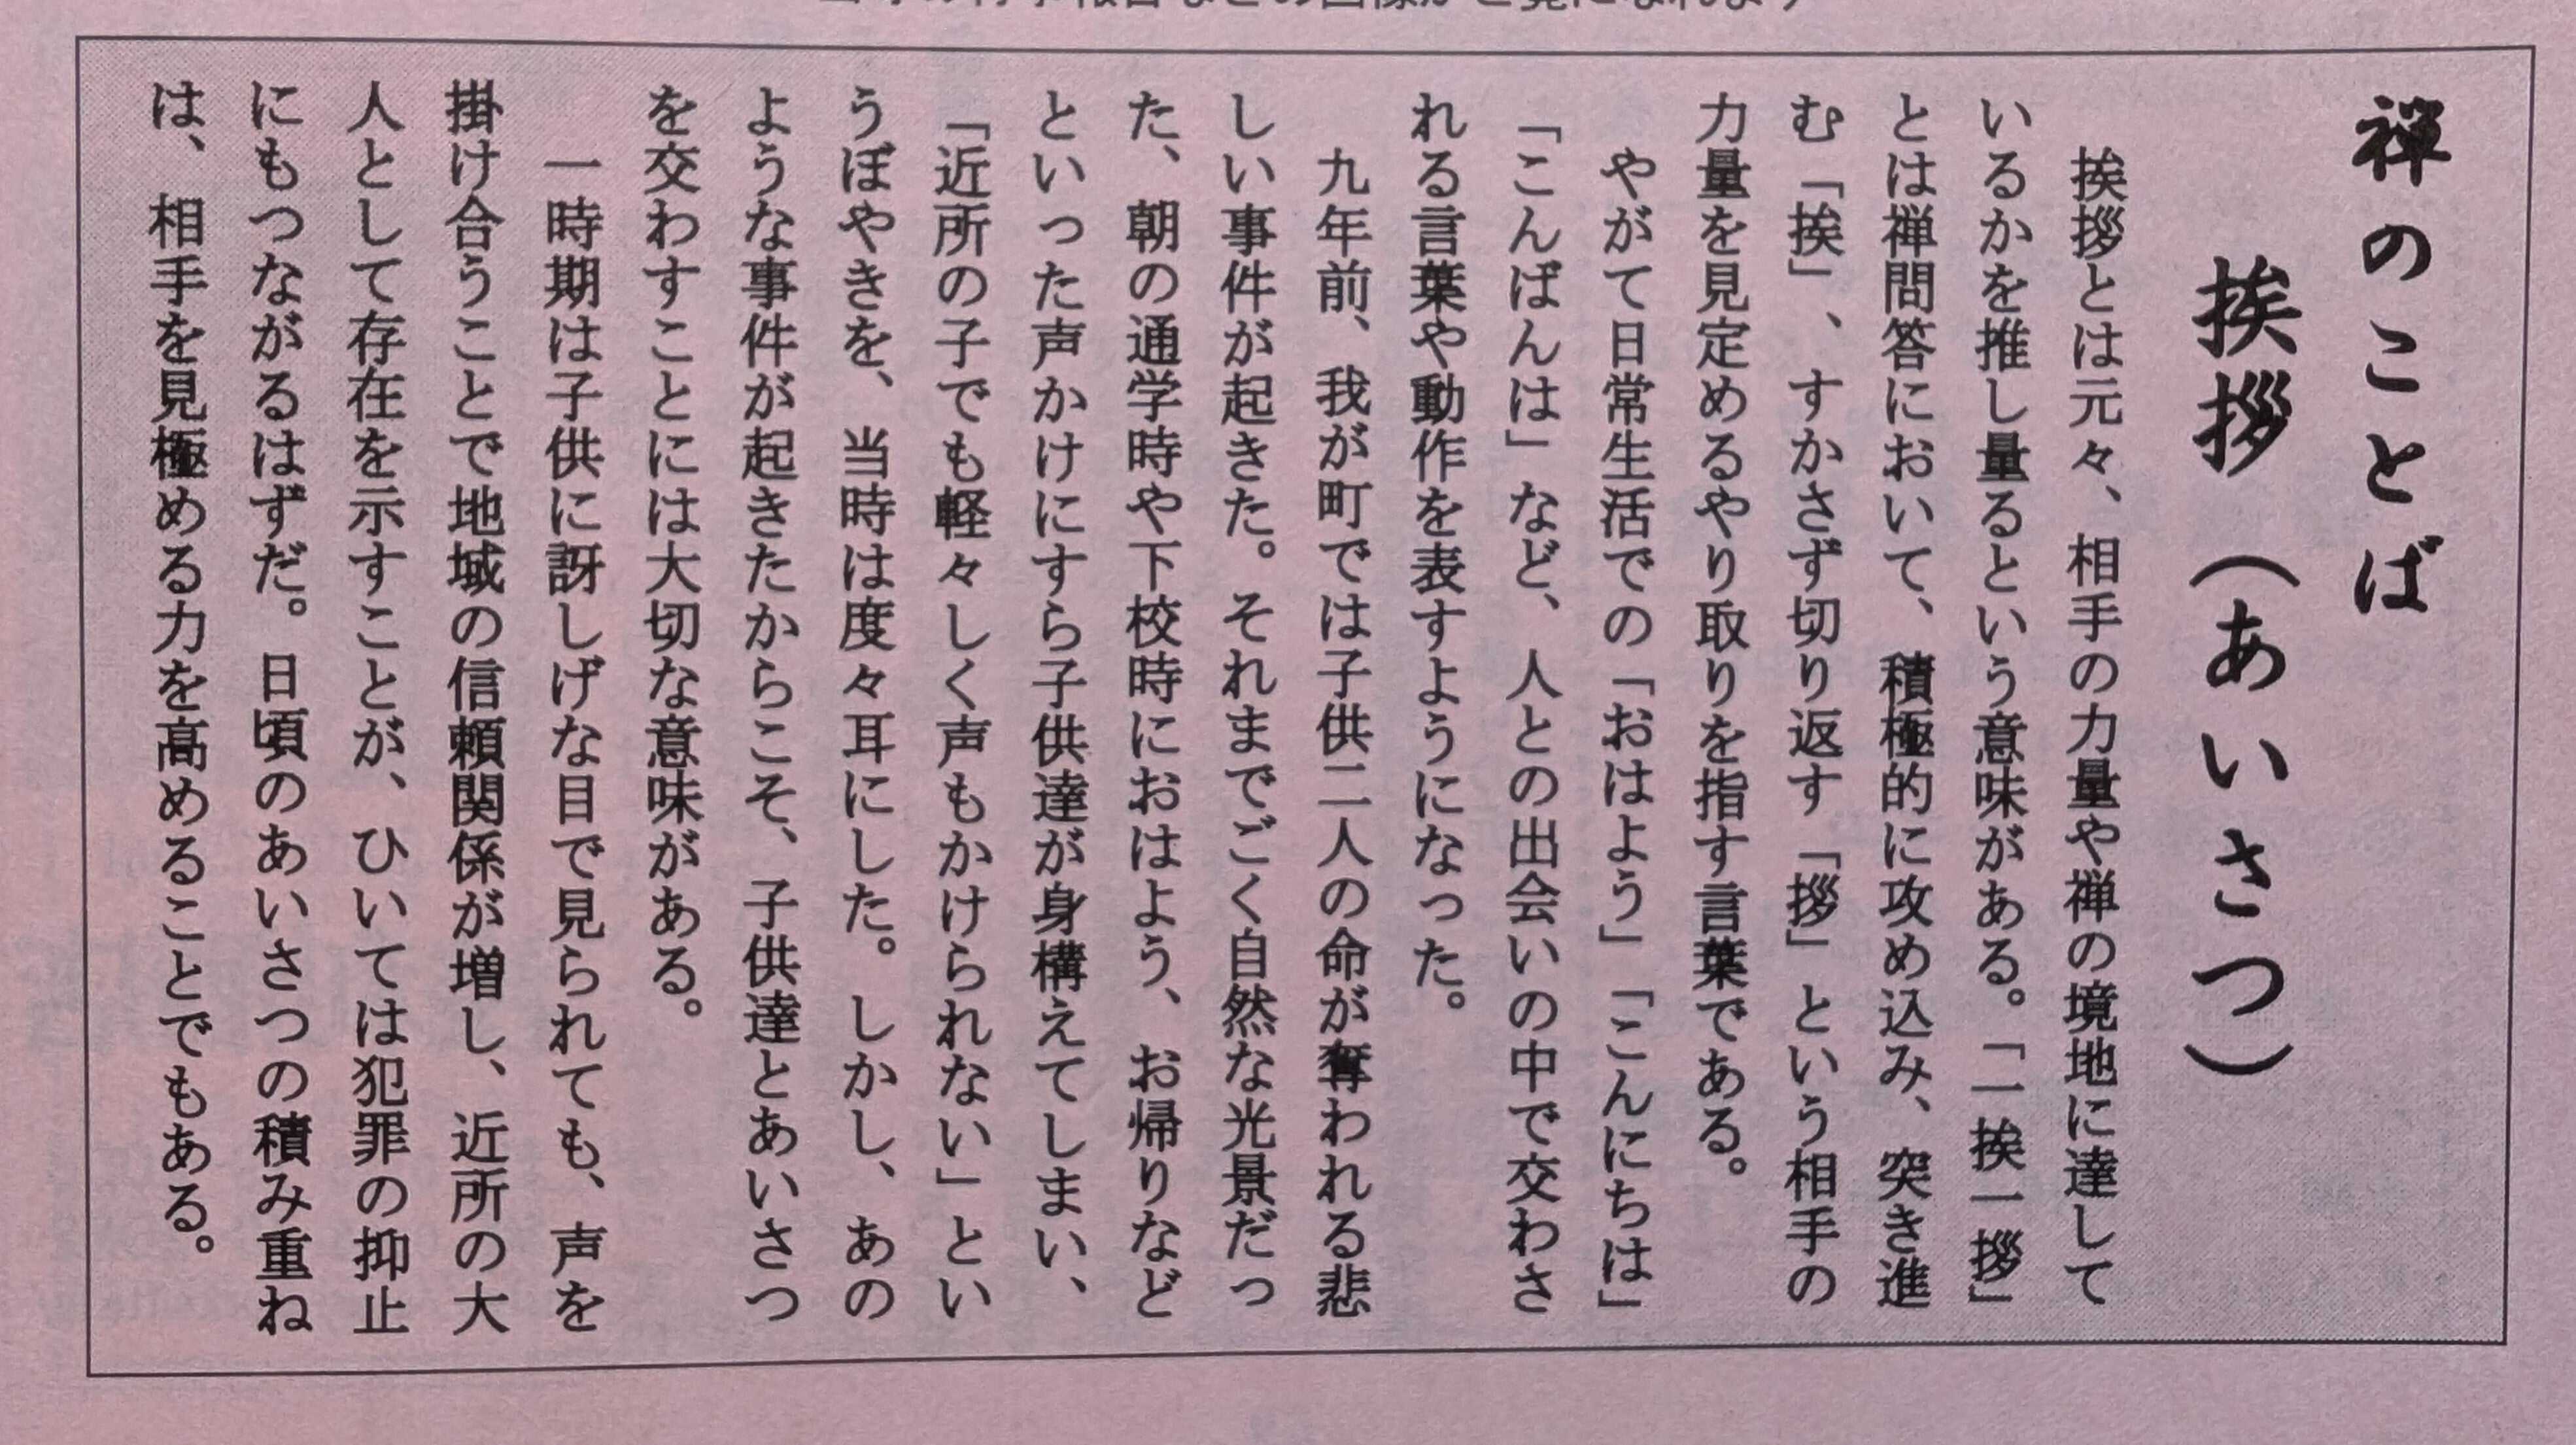 禅のことば
挨拶（あいさつ）
挨拶とは元々、相手の力量や禅の境地に達して
いるかを推し量るという意味がある。「一挨一拶」
とは禅問答において、積極的に攻め込み、突き進
む「挨」、すかさず切り返す「拶」という相手の
力量を見定めるやり取りを指す言葉である。
やがて日常生活での「おはよう」「こんにちは」
「こんばんは」など、人との出会いの中で交わさ
れる言葉や動作を表すようになった。
九年前、我が町では子供二人の命が奪われる悲
しい事件が起きた。それまでごく自然な光景だっ
た、朝の通学時や下校時におはよう、お帰りなど
といった声かけにすら子供達が身構えてしまい、
「近所の子でも軽々しく声もかけられない」とい
うぼやきを、当時は度々耳にした。しかし、あの
ような事件が起きたからこそ、子供達とあいさつ
を交わすことには大切な意味がある。
一時期は子供に訝しげな目で見られても、声を
掛け合うことで地域の信頼関係が増し、近所の大
人として存在を示すことが、ひいては犯罪の抑止
にもつながるはずだ。日頃のあいさつの積み重ね
は、相手を見極める力を高めることでもある。